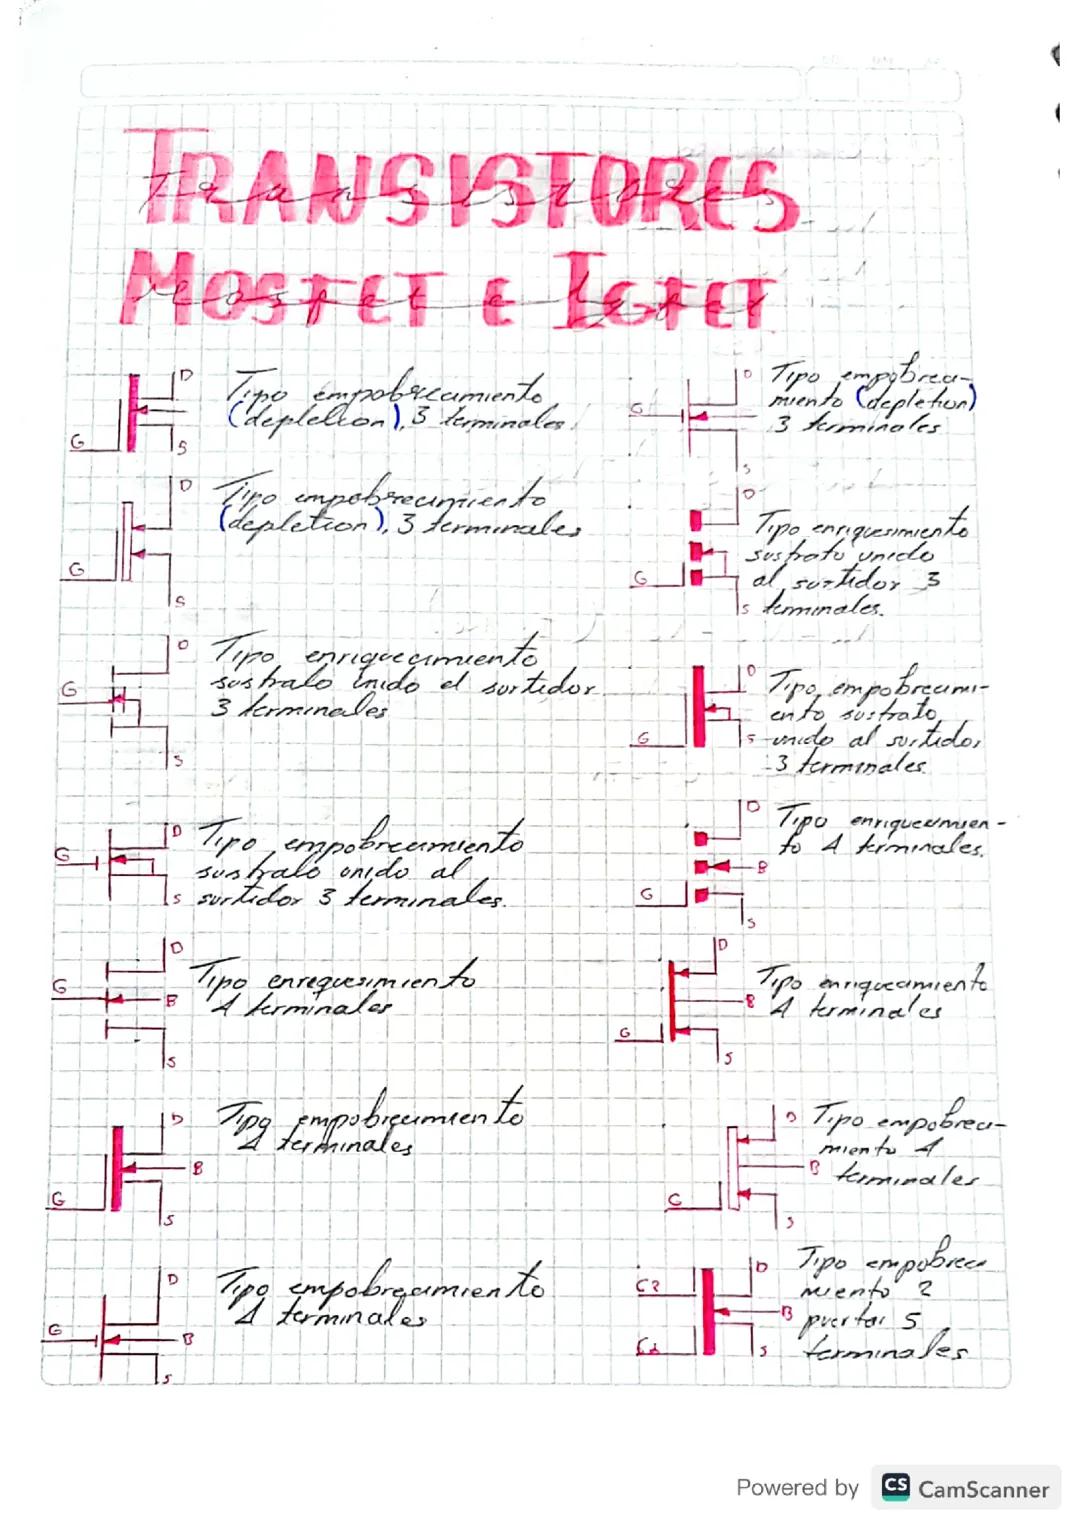 TRANSISTORES
Transistores
MOSFET E IGFET
Mosfet e Igfet
D
G
S
Tipo empobrecamiento
(depletion), 3 terminales.
D
G
S
Tipo empobreci-
miento (depletion)
3 terminales
D
G
S
Tipo empobrecimiento
(depletion), 3 terminales
D
G
S
Tipo enriquesimiento
sustrato unido
al surtidor 3
terminales.
D
G
S
Tipo enriquecimiento
sustrato unido el surtidor
3 terminales
D
G
S
Tipo empobrecimi-
ento sustrato
unido al surtidor
3 terminales
D
G
S
Tipo empobrecimiento
sustrato unido al
surtidor 3 terminales.
D
G
B
S
Tipo enriquesimien-
to 4 terminales.
D
G
B
S
Tipo enriquesimiento
4 terminales
D
G
B
S
Tipo enriquecimiento
4 terminales
D
G
B
S
Tipo empobrecimiento
4 terminales
D
G
B
S
Tipo empobreci-
miento 4
terminales
D
G
B
S
Tipo empobrecimiento
4 terminales
G2
G1
D
B
S
Tipo empobreci
miento 2
puertas 5
terminales
Powered by CS CamScanner